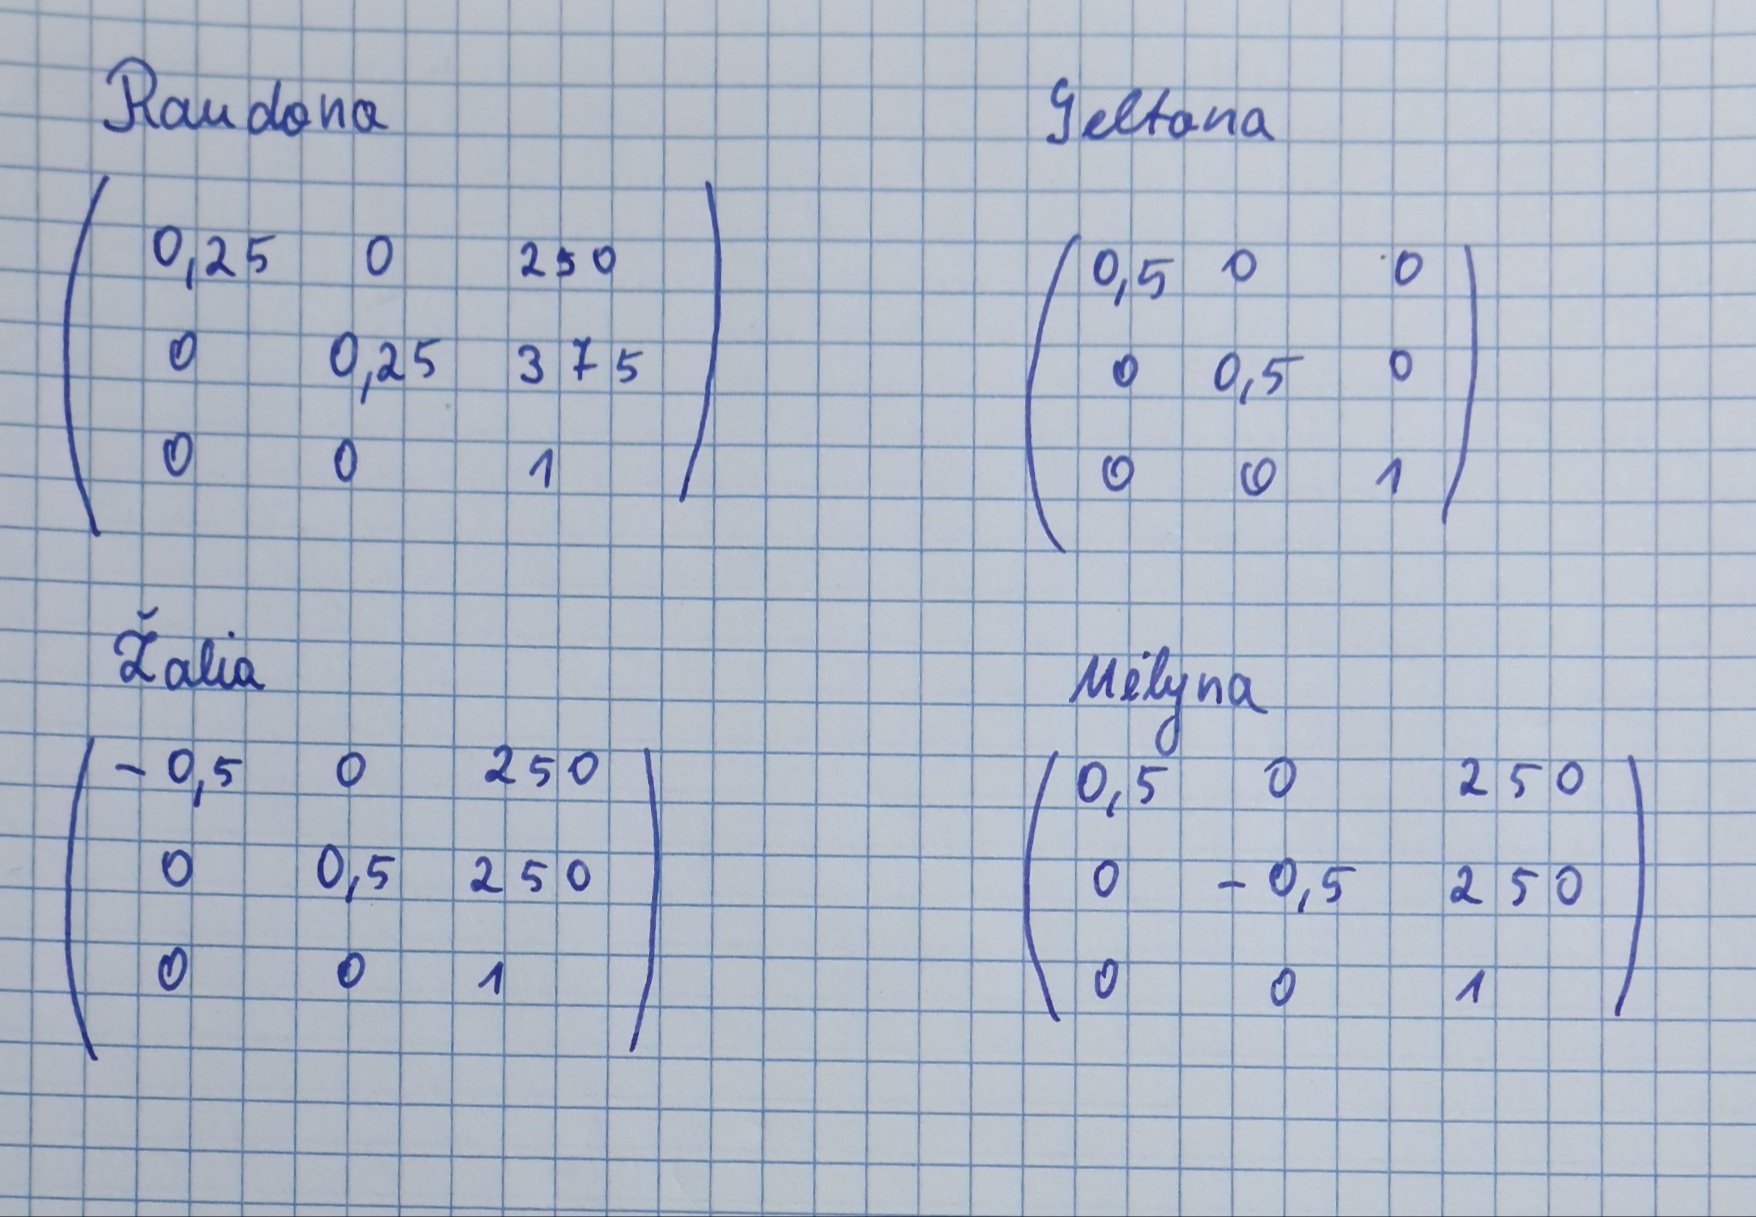 Raudona
0,25 0 250
0 0,25 375
0 0 1
Geltona
0,5 0 0
0 0,5 0
0 0 1
Žalia
-0,5 0 250
0 0,5 250
0 0 1
Mėlyna
0,5 0 250
0 -0,5 250
0 0 1